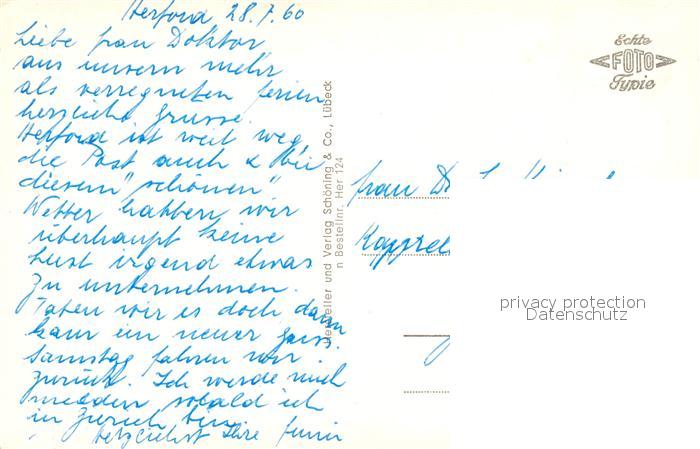 Herford 28.7.60
Liebe Frau Doktor
aus unsern mehr
als verregneten Ferien
herzliche Grüsse.
Herford ist weit weg,
die Post auch & bei
diesem "schönen"
Wetter habben wir
überhaupt keine
Lust irgend etwas
zu unternehmen.
Taten wir es doch dann
kam ein neuer Guss.
Samstag fahren wir
zurück. Ich werde mich
melden sobald ich
in Zürich bin
herzlichst Ihre
Hersteller und Verlag Schöning & Co., Lübeck
n Bestellnr. Her 124
Echte
FOTO
Typie
Frau
privacy protection
Datenschutz